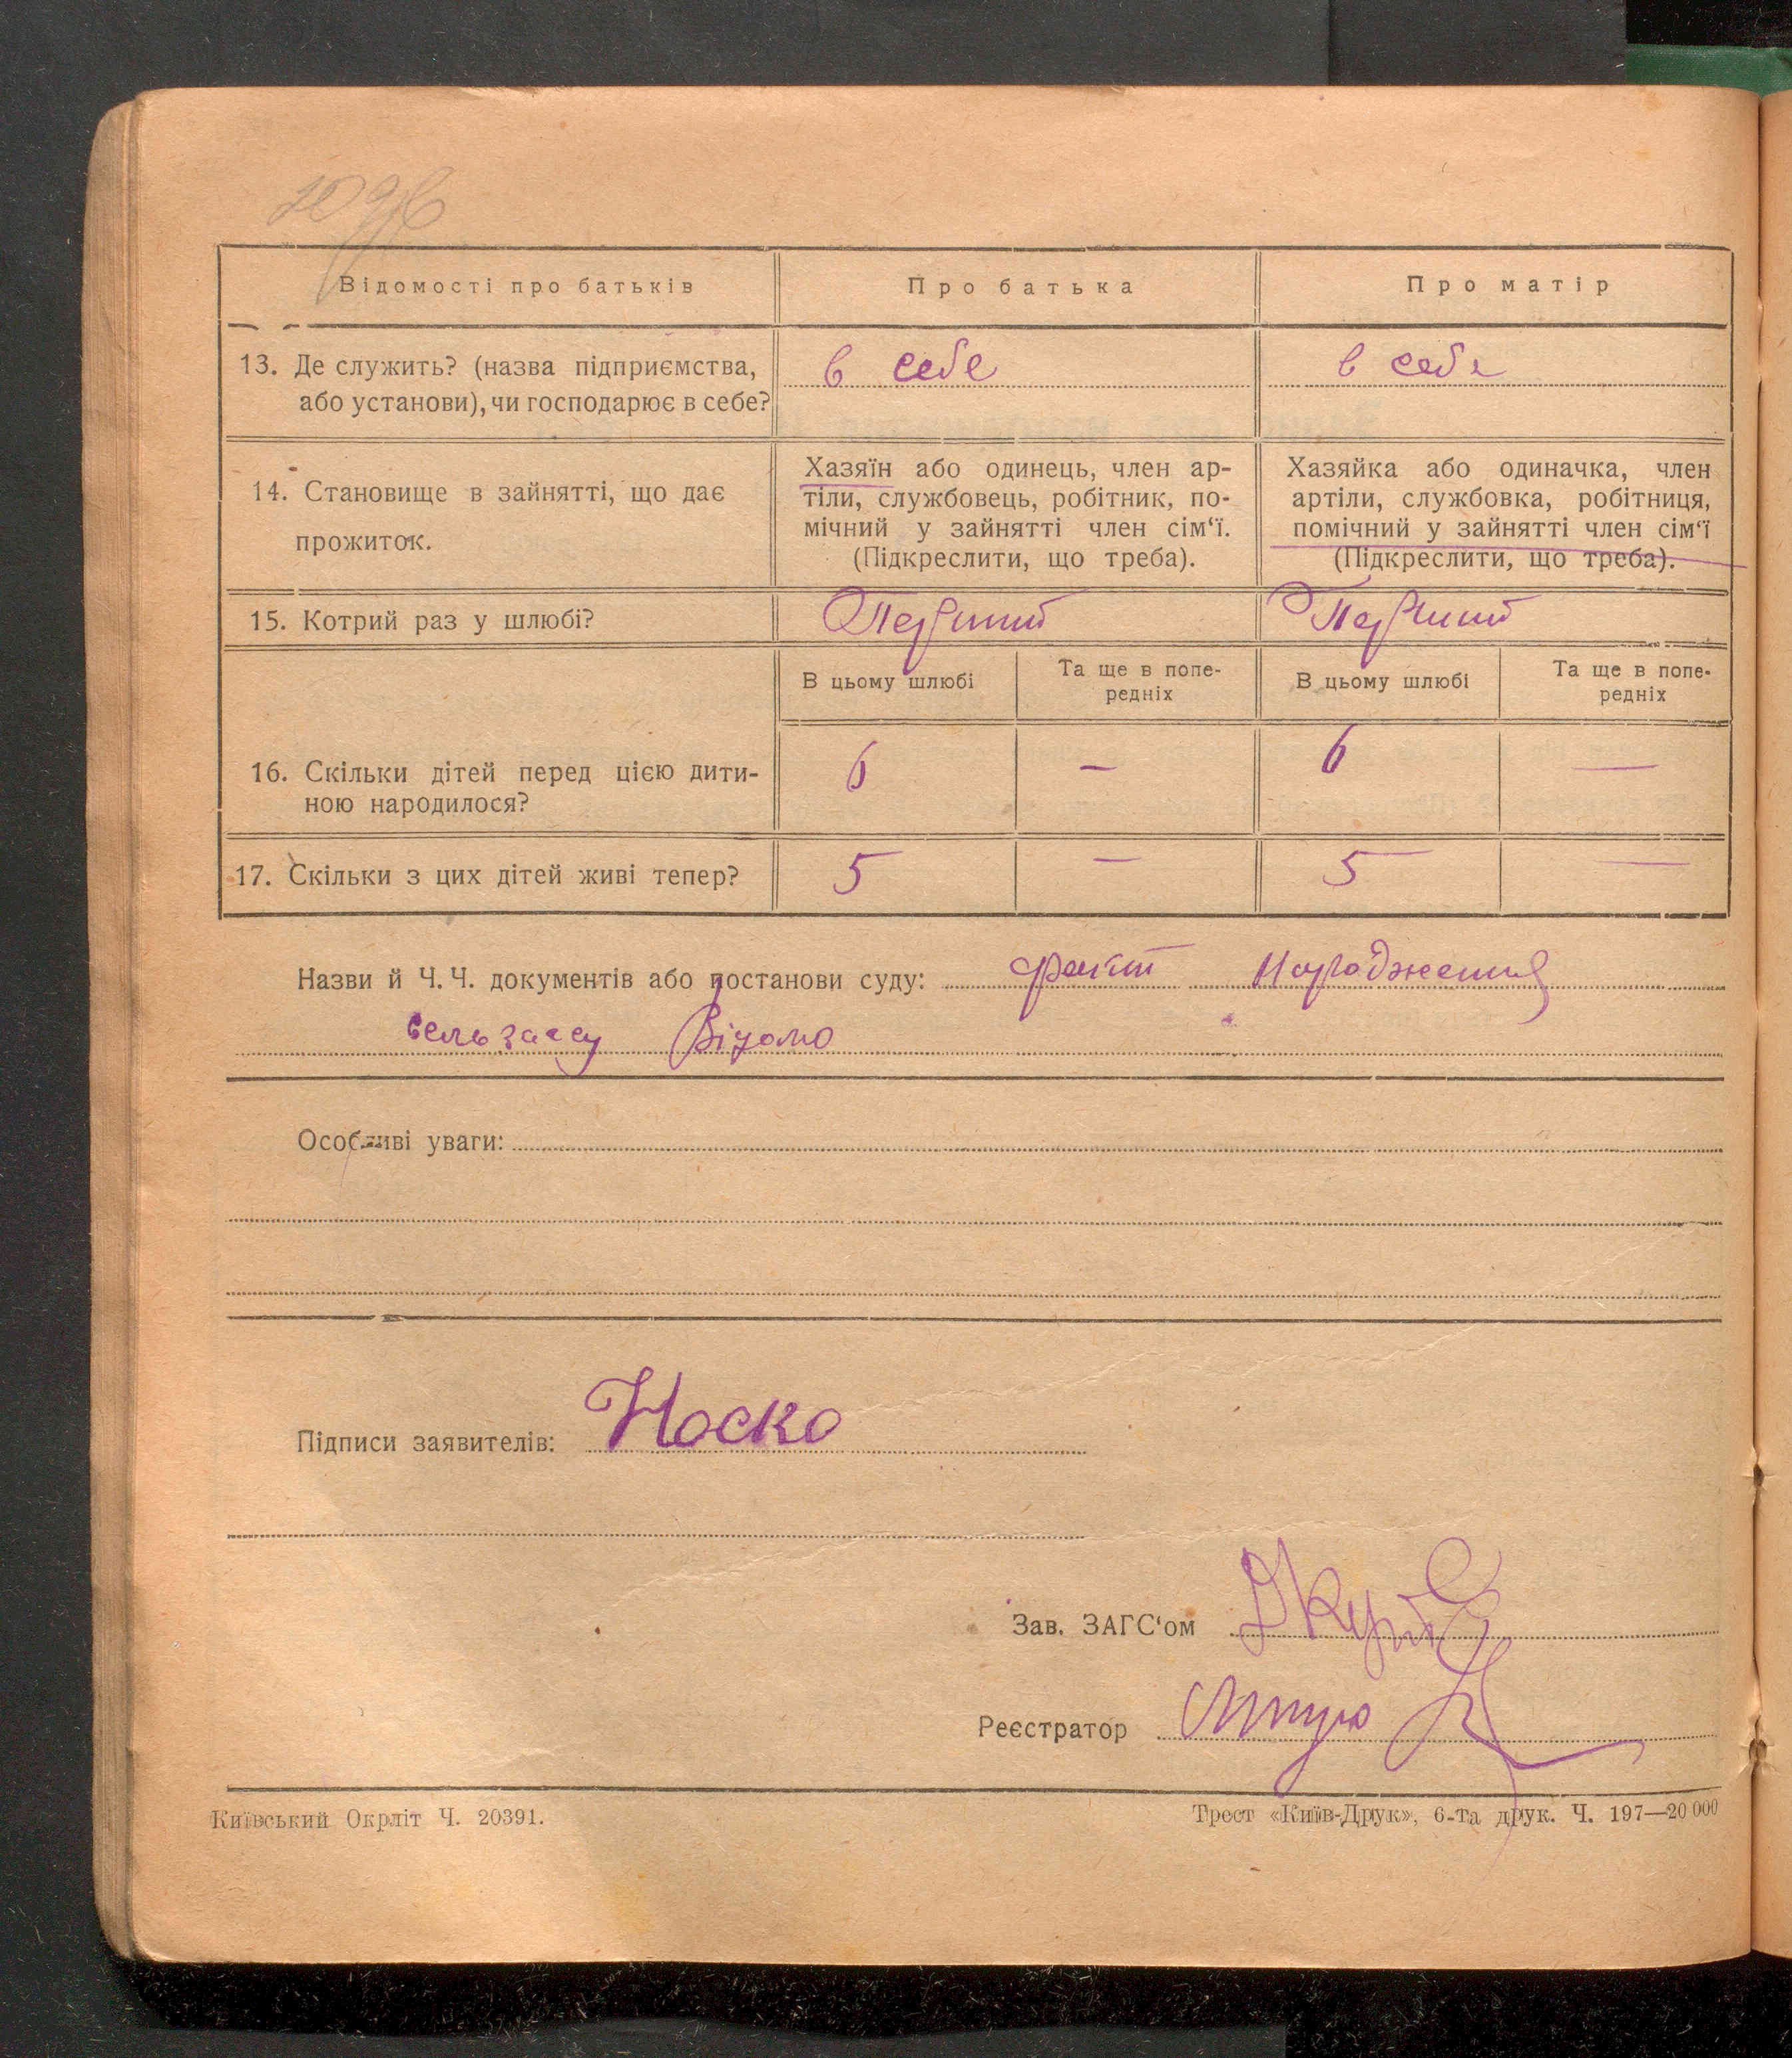 Відомості про батьків
Про батька
Про матір
13. Де служить? (назва підприємства,
або установи), чи господарює в себе?
в себе
в себе
14. Становище в зайнятті, що дає
прожиток.
Хазяїн або одинець, член ар-
тіли, службовець, робітник, по-
мічний у зайнятті член сім‘ї.
(Підкреслити, що треба).
Хазяйка або одиначка, член
артіли, службовка, робітниця,
помічний у зайнятті член сім‘ї
(Підкреслити, що треба).
15. Котрий раз у шлюбі?
Первший
Первший
В цьому шлюбі
Та ще в попе-
редніх
В цьому шлюбі
Та ще в попе-
редніх
16. Скільки дітей перед цією дити-
ною народилося?
6
—
6
—
17. Скільки з цих дітей живі тепер?
5
—
5
—
Назви й Ч. Ч. документів або постанови суду: факт народження
сельзагсу Відомо
Особливі уваги:
Підписи заявителів: Носко
Зав. ЗАГС‘ом
Реєстратор
Київський Окрліт Ч. 20391.
Трест «Київ-Друк», 6-та друк. Ч. 197—20 000